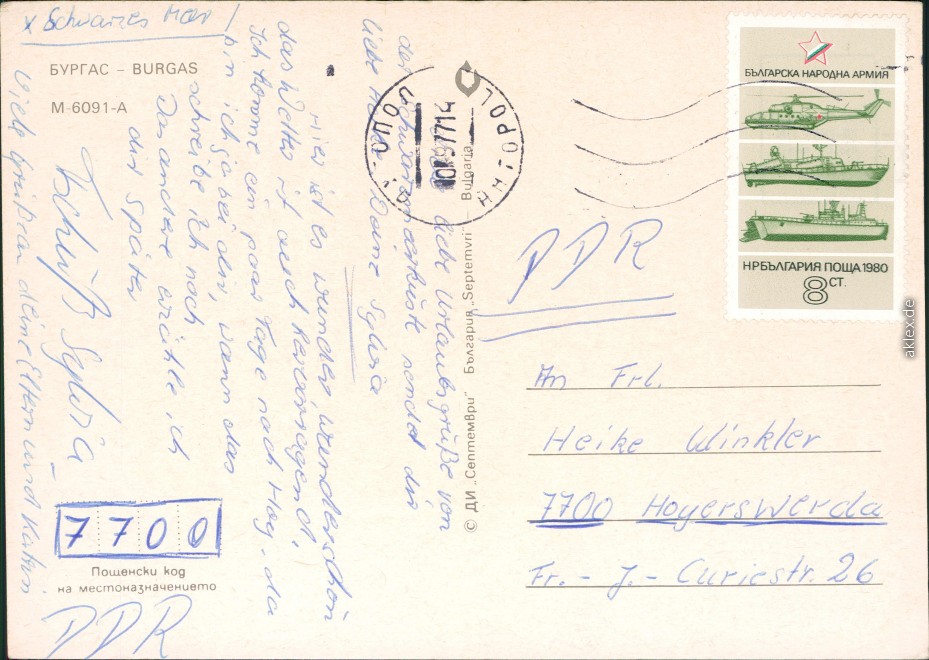 x Schwarzes Meer!
БУРГАС – BURGAS
M-6091-A
Liebe Urlaubsgrüße von
der Schwarzmeerküste sendet dir
liebe Heike Deine Sylvia
Hier ist es wunder, wunderschön
das Wetter ist auch hervorragend.
Ich komme ein paar Tage nach Hoy. da
bin ich ja bei dir, wann das
schreibe ich noch
Das andere erzähle ich
dir später
Tschüß Sylvia
Viele Grüße an deine Eltern und Katrin
7 7 0 0
Пощенски код
на местоназначението
DDR
© ДИ „Септември" България „Septemvri" Bulgaria
БЪЛГАРСКА НАРОДНА АРМИЯ
НР БЪЛГАРИЯ ПОЩА 1980
8 СТ.
DDR
An Frl.
Heike Winkler
7700 Hoyerswerda
Fr.- J.- Curiestr. 26
aklex.de